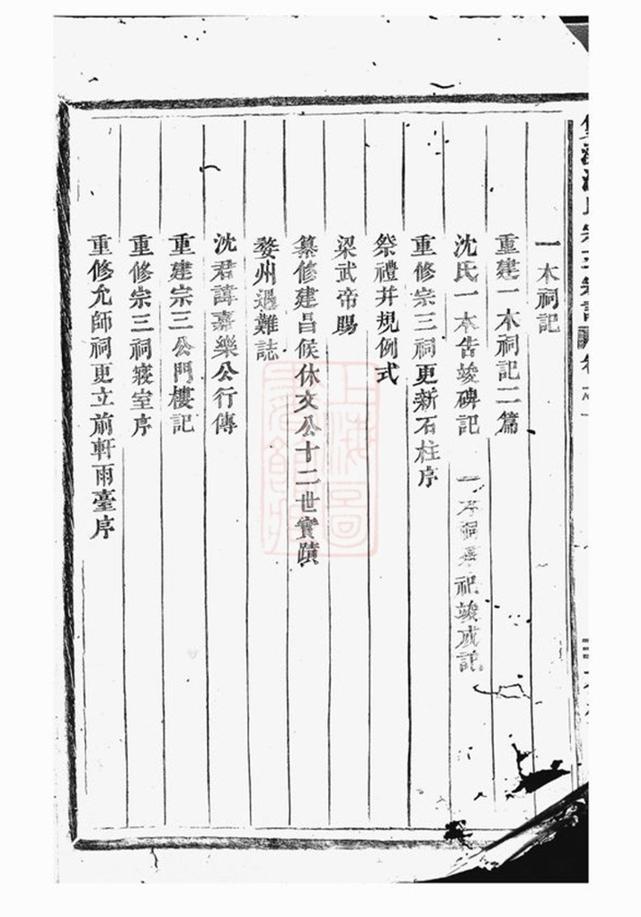 一本祠記
重建一本祠記二篇
沈氏一本告竣碑記 一本祠 祀竣成記
重修宗三祠更新石柱序
祭禮并規例式
梁武帝賜
纂修建昌侯休文公十二世實蹟
婺州遇難誌
沈君諱嘉樂公行傳
重建宗三公門樓記
重修宗三祠寢室序
重修允師祠更立前軒雨臺序
上海圖